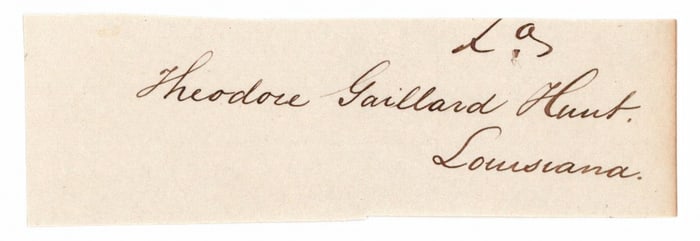 La
Theodore Gaillard Hunt.
Louisiana.